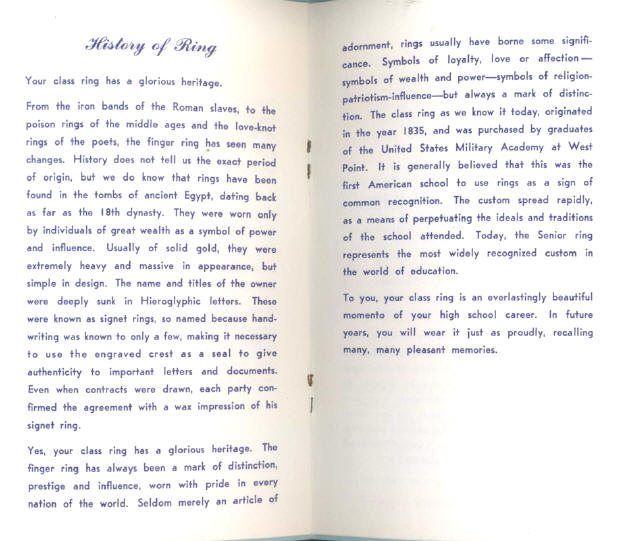 History of Ring
Your class ring has a glorious heritage.
From the iron bands of the Roman slaves, to the
poison rings of the middle ages and the love-knot
rings of the poets, the finger ring has seen many
changes. History does not tell us the exact period
of origin, but we do know that rings have been
found in the tombs of ancient Egypt, dating back
as far as the 18th dynasty. They were worn only
by individuals of great wealth as a symbol of power
and influence. Usually of solid gold, they were
extremely heavy and massive in appearance, but
simple in design. The name and titles of the owner
were deeply sunk in Hieroglyphic letters. These
were known as signet rings, so named because hand-
writing was known to only a few, making it necessary
to use the engraved crest as a seal to give
authenticity to important letters and documents.
Even when contracts were drawn, each party con-
firmed the agreement with a wax impression of his
signet ring.
Yes, your class ring has a glorious heritage. The
finger ring has always been a mark of distinction,
prestige and influence, worn with pride in every
nation of the world. Seldom merely an article of
adornment, rings usually have borne some signifi-
cance. Symbols of loyalty, love or affection—
symbols of wealth and power—symbols of religion-
patriotism-influence—but always a mark of distinc-
tion. The class ring as we know it today, originated
in the year 1835, and was purchased by graduates
of the United States Military Academy at West
Point. It is generally believed that this was the
first American school to use rings as a sign of
common recognition. The custom spread rapidly,
as a means of perpetuating the ideals and traditions
of the school attended. Today, the Senior ring
represents the most widely recognized custom in
the world of education.
To you, your class ring is an everlastingly beautiful
momento of your high school career. In future
years, you will wear it just as proudly, recalling
many, many pleasant memories.